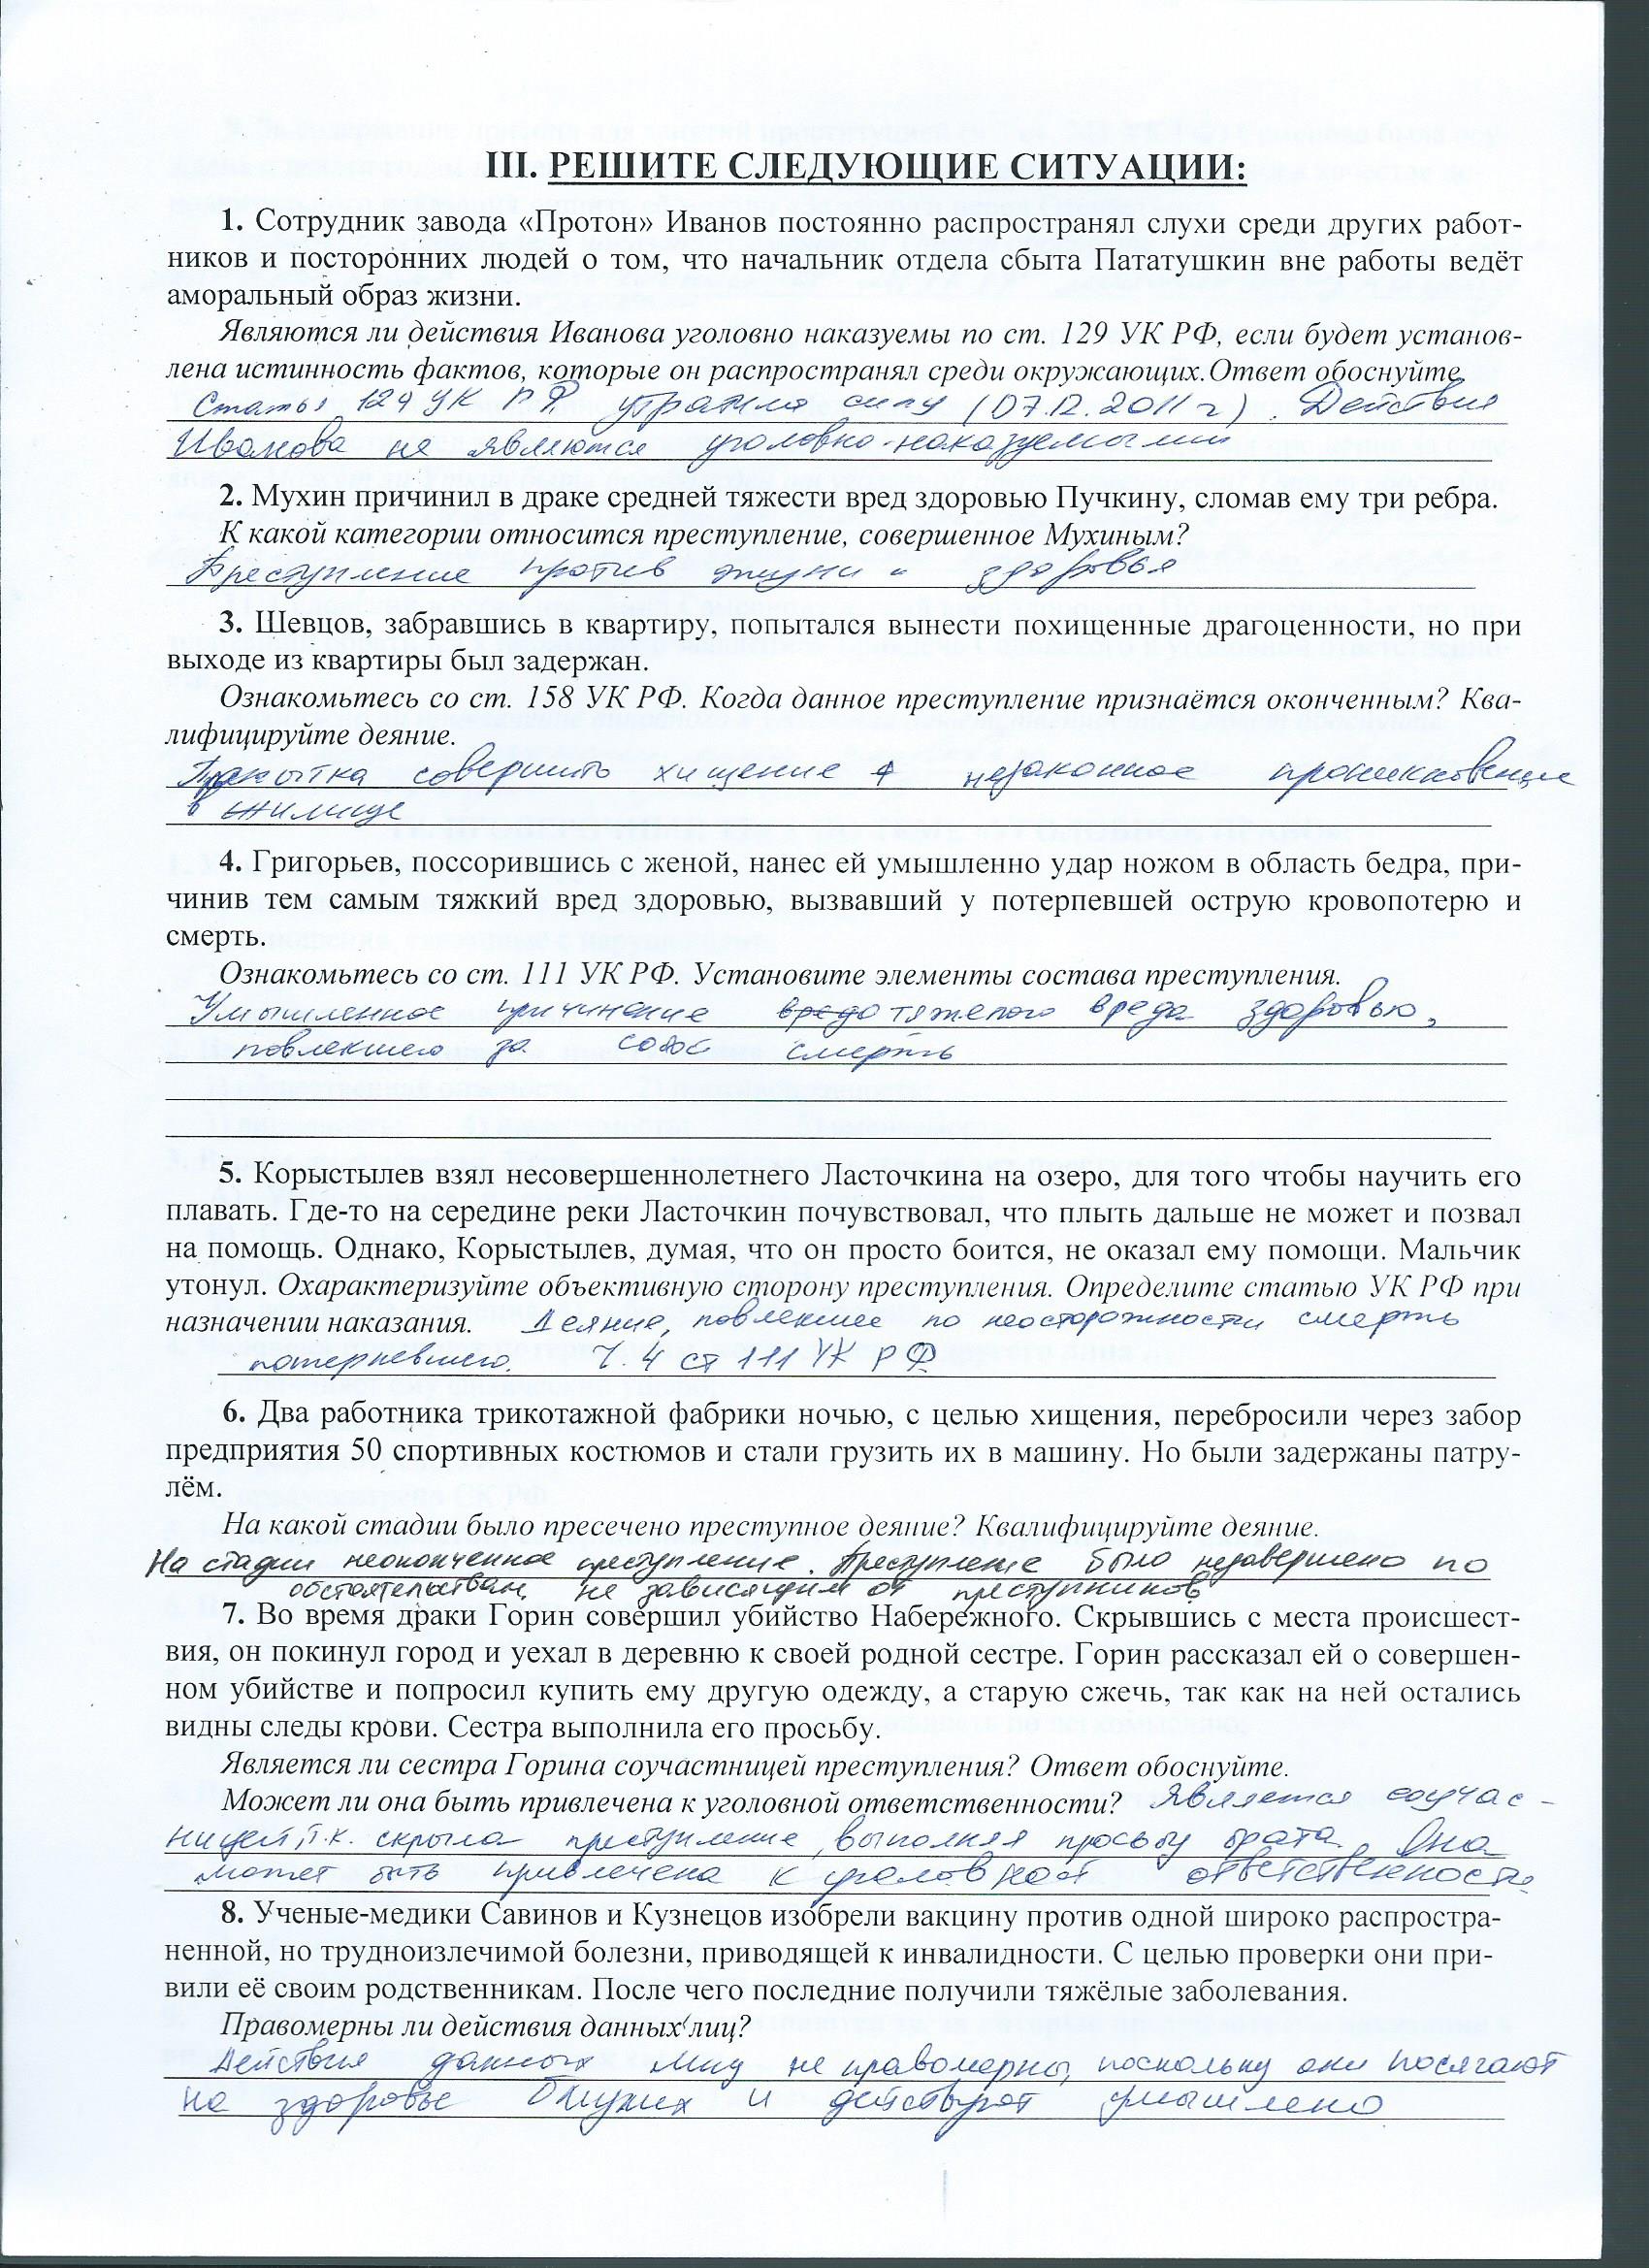 III. РЕШИТЕ СЛЕДУЮЩИЕ СИТУАЦИИ:
1. Сотрудник завода «Протон» Иванов постоянно распространял слухи среди других работ-
ников и посторонних людей о том, что начальник отдела сбыта Пататушкин вне работы ведёт
аморальный образ жизни.
Являются ли действия Иванова уголовно наказуемы по ст. 129 УК РФ, если будет установ-
лена истинность фактов, которые он распространял среди окружающих.Ответ обоснуйте
Статья 129 УК РФ утратила силу (07.12.2011 г). Действия
Иванова не являются уголовно-наказуемыми
2. Мухин причинил в драке средней тяжести вред здоровью Пучкину, сломав ему три ребра.
К какой категории относится преступление, совершенное Мухиным?
Преступление против жизни и здоровья
3. Шевцов, забравшись в квартиру, попытался вынести похищенные драгоценности, но при
выходе из квартиры был задержан.
Ознакомьтесь со ст. 158 УК РФ. Когда данное преступление признаётся оконченным? Ква-
лифицируйте деяние.
Попытка совершить хищение + незаконное проникновение
в жилище
4. Григорьев, поссорившись с женой, нанес ей умышленно удар ножом в область бедра, при-
чинив тем самым тяжкий вред здоровью, вызвавший у потерпевшей острую кровопотерю и
смерть.
Ознакомьтесь со ст. 111 УК РФ. Установите элементы состава преступления.
Умышленное причинение тяжелого вреда здоровью,
повлекшего за собой смерть
5. Корыстылев взял несовершеннолетнего Ласточкина на озеро, для того чтобы научить его
плавать. Где-то на середине реки Ласточкин почувствовал, что плыть дальше не может и позвал
на помощь. Однако, Корыстылев, думая, что он просто боится, не оказал ему помощи. Мальчик
утонул. Охарактеризуйте объективную сторону преступления. Определите статью УК РФ при
назначении наказания. Деяние, повлекшее по неосторожности смерть
потерпевшего. Ч. 4 ст 111 УК РФ
6. Два работника трикотажной фабрики ночью, с целью хищения, перебросили через забор
предприятия 50 спортивных костюмов и стали грузить их в машину. Но были задержаны патру-
лём.
На какой стадии было пресечено преступное деяние? Квалифицируйте деяние.
На стадии неоконченное преступление. Преступление было незавершено по
обстоятельствам, не зависящим от преступников
7. Во время драки Горин совершил убийство Набережного. Скрывшись с места происшест-
вия, он покинул город и уехал в деревню к своей родной сестре. Горин рассказал ей о совершен-
ном убийстве и попросил купить ему другую одежду, а старую сжечь, так как на ней остались
видны следы крови. Сестра выполнила его просьбу.
Является ли сестра Горина соучастницей преступления? Ответ обоснуйте.
Может ли она быть привлечена к уголовной ответственности? Является соучас-
ницей, т.к. скрыла преступление, выполняя просьбу брата. Она
может быть привлечена к уголовной ответственности.
8. Ученые-медики Савинов и Кузнецов изобрели вакцину против одной широко распростра-
ненной, но трудноизлечимой болезни, приводящей к инвалидности. С целью проверки они при-
вили её своим родственникам. После чего последние получили тяжёлые заболевания.
Правомерны ли действия данных лиц?
Действия данных лиц не правомерны, поскольку они посягают
на здоровье близких и действуют умышлено